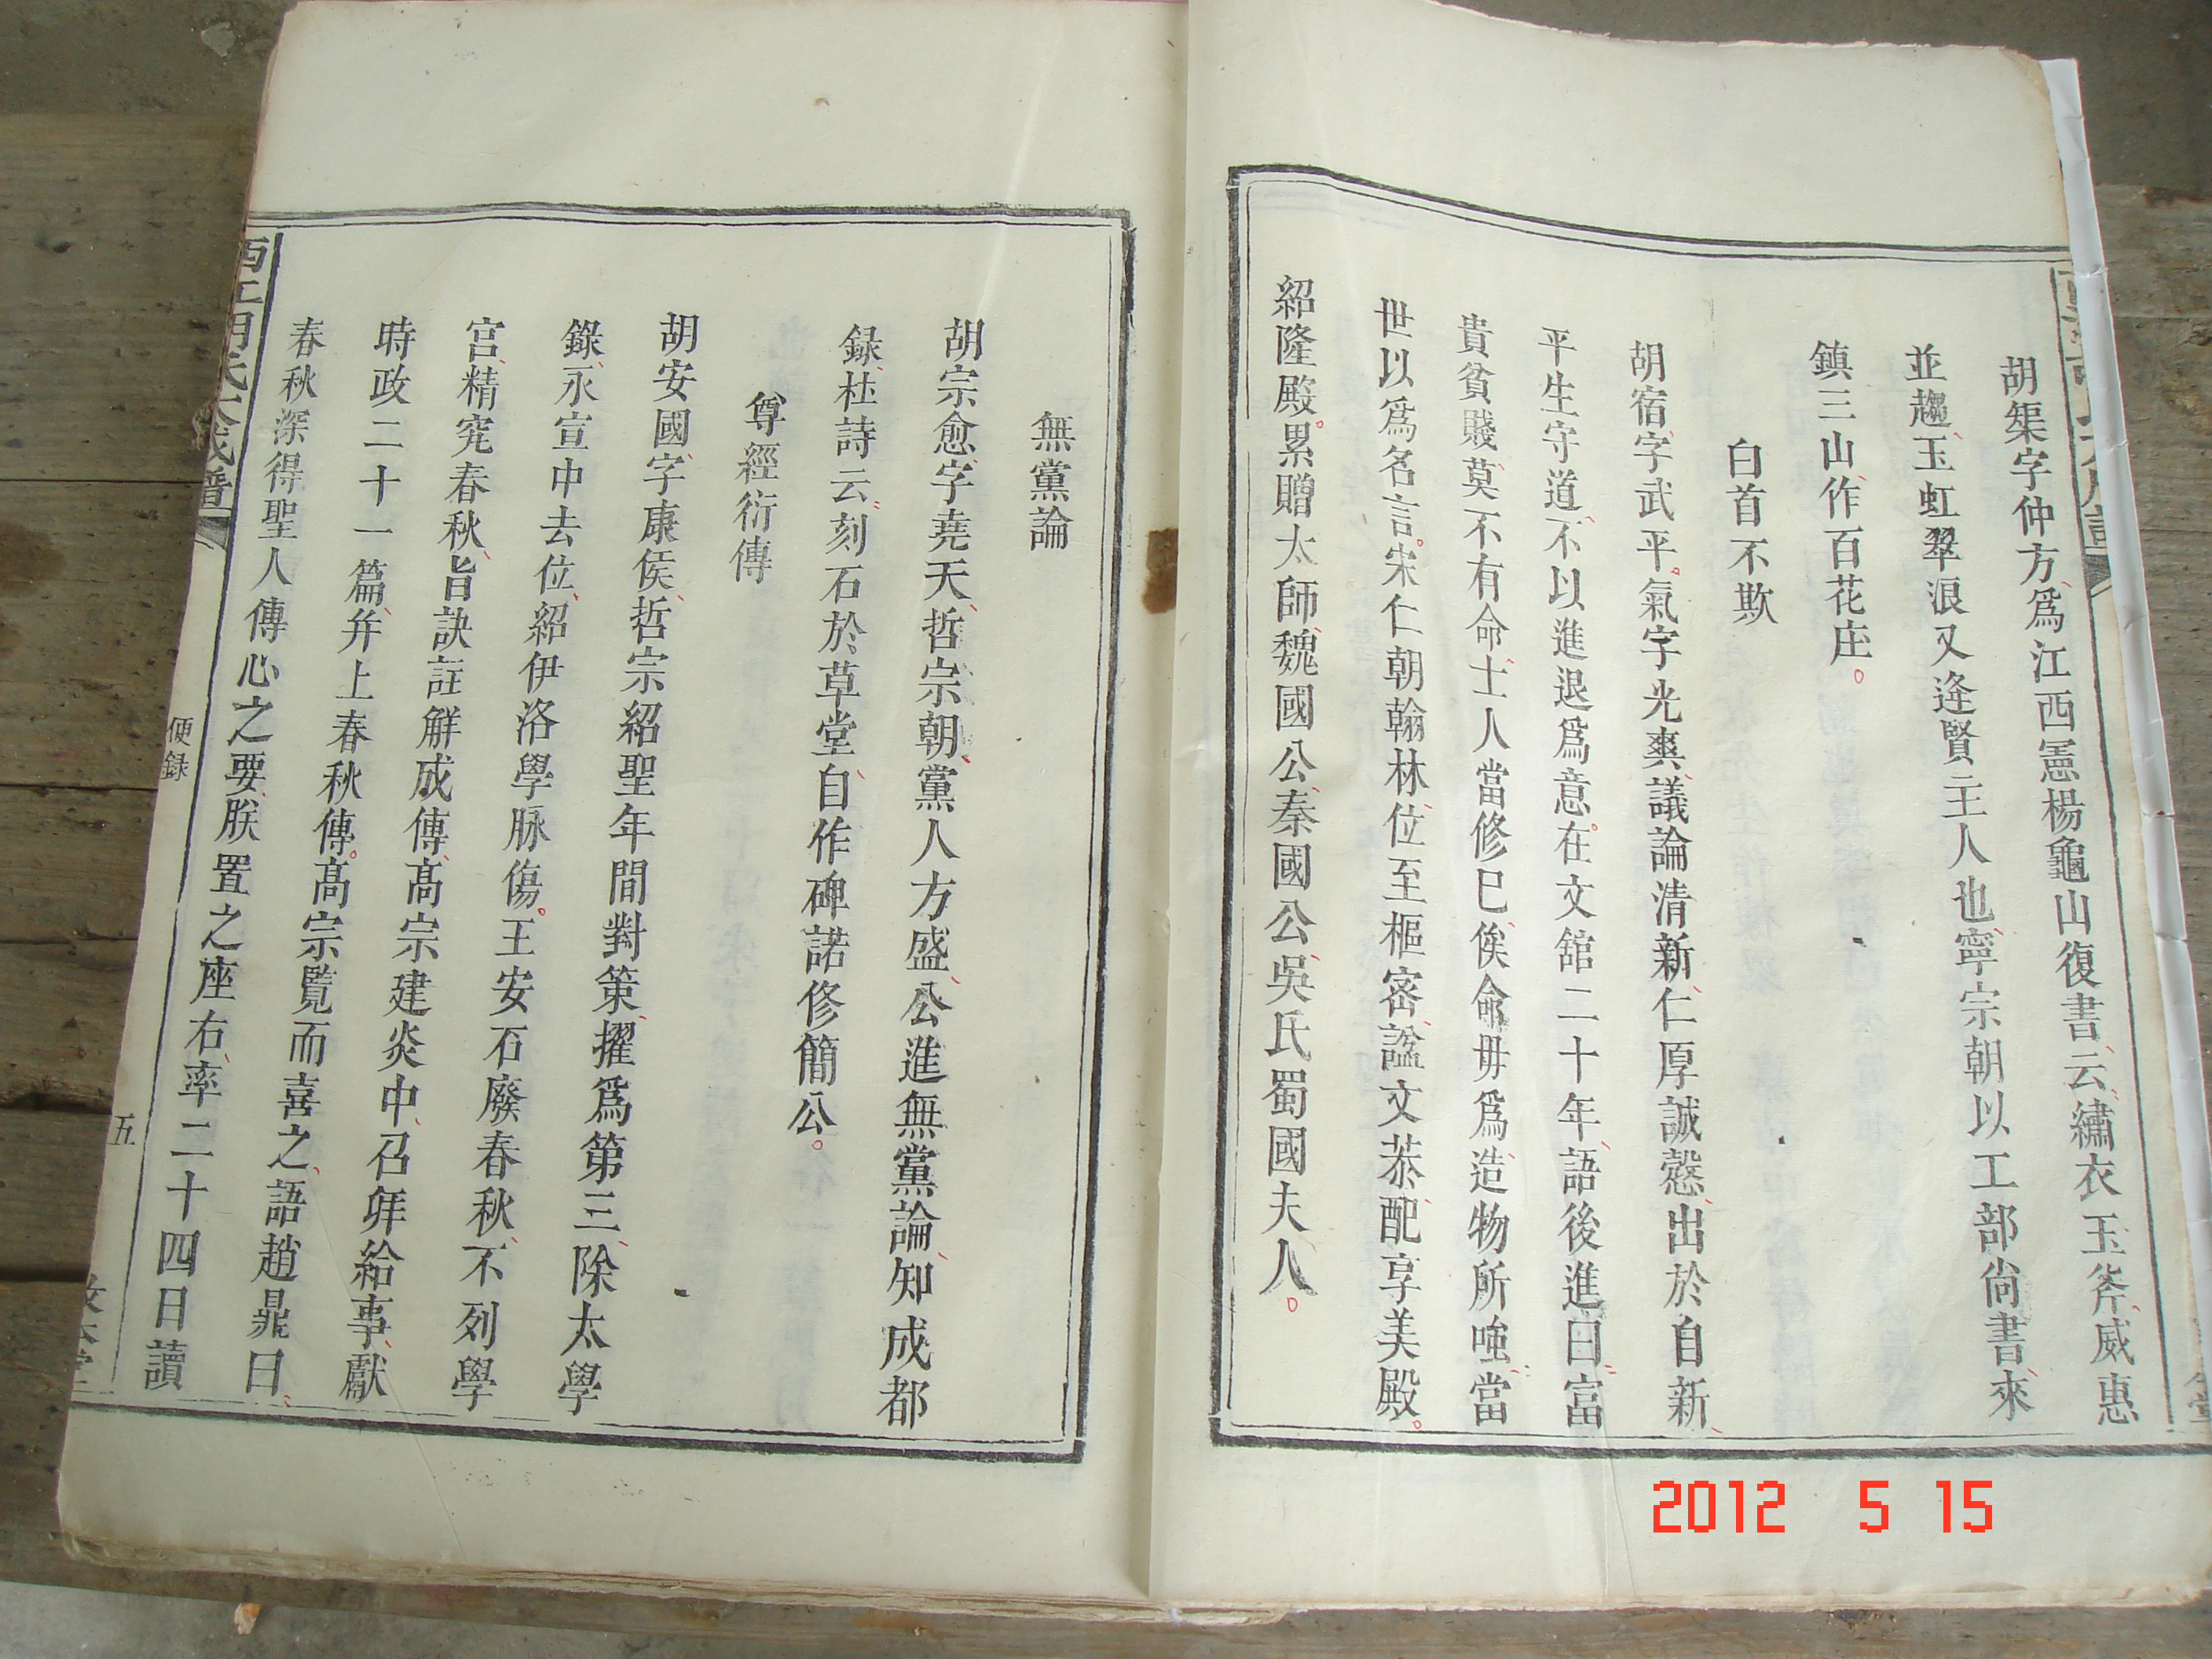 胡榘字仲方爲江西憲楊龜山復書云繡衣玉斧威惠
並趨玉虹翠浪又逄賢主人也寧宗朝以工部尙書來
鎮三山作百花庄
白首不欺
胡宿字武平氣字光爽議論清新仁厚誠慤出於自新
平生守道不以進退爲意在文舘二十年語後進曰富
貴貧賤莫不有命士人當修巳俟命毋爲造物所嗤當
世以爲名言宋仁朝翰林位至樞密諡文恭配享美殿
紹隆殿累贈太師魏國公秦國公吳氏蜀國夫人
無黨論
胡宗愈字堯天哲宗朝黨人方盛公進無黨論知成都
録杜詩云刻石於草堂自作碑諾修簡公
尊經衍傳
胡安國字康侯哲宗紹聖年間對策擢爲第三除太學
錄永宣中去位紹伊洛學脉傷王安石廢春秋不列學
宫精究春秋旨訣註解成傳高宗建炎中召拜給事獻
時政二十一篇并上春秋傳高宗覧而喜之語趙鼎曰
春秋深得聖人傳心之要朕置之座右率二十四日讀
便録
五
2012 5 15